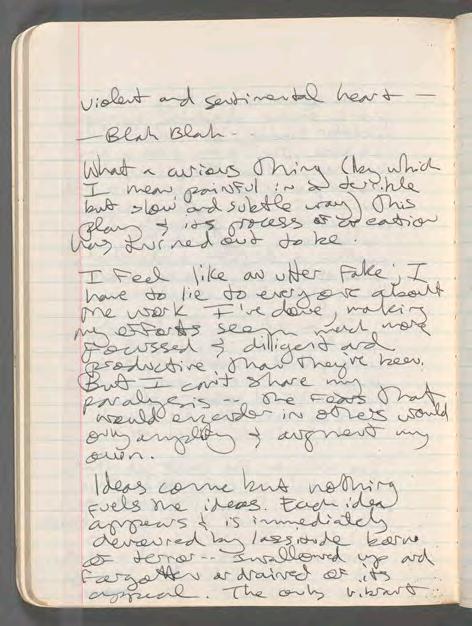 violent and sentimental heart —
— Blah Blah - -
What a curious thing (by which
I mean painful in a terrible
but slow and subtle way) This
play & its process of creation
has turned out to be.
I feel like an utter fake; I
have to lie to everyone about
the work I've done, making
my efforts seem much more
focussed & dilligent and
productive than they've been.
But I can't share my
paralysis -- the fears that
would engender in others would
only amplify & augment my
own.
Ideas come but nothing
fuels the ideas. Each idea
appears & is immediately
devoured by lassitude borne
of terror -- swallowed up and
forgotten or drained of its
appeal. The only vibrant